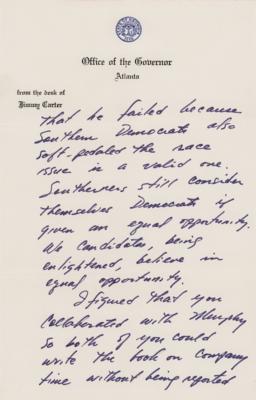 Office of the Governor
Atlanta
from the desk of
Jimmy Carter
That he failed because
Southern Democrats also
soft-pedaled the race
issue in a valid one.
Southerners still consider
themselves Democrats if
given an equal opportunity.
We candidates, being
enlightened, believe in
equal opportunity.
I figured that you
collaborated with Murphy
so both of you could
write the book on company
time without being reported